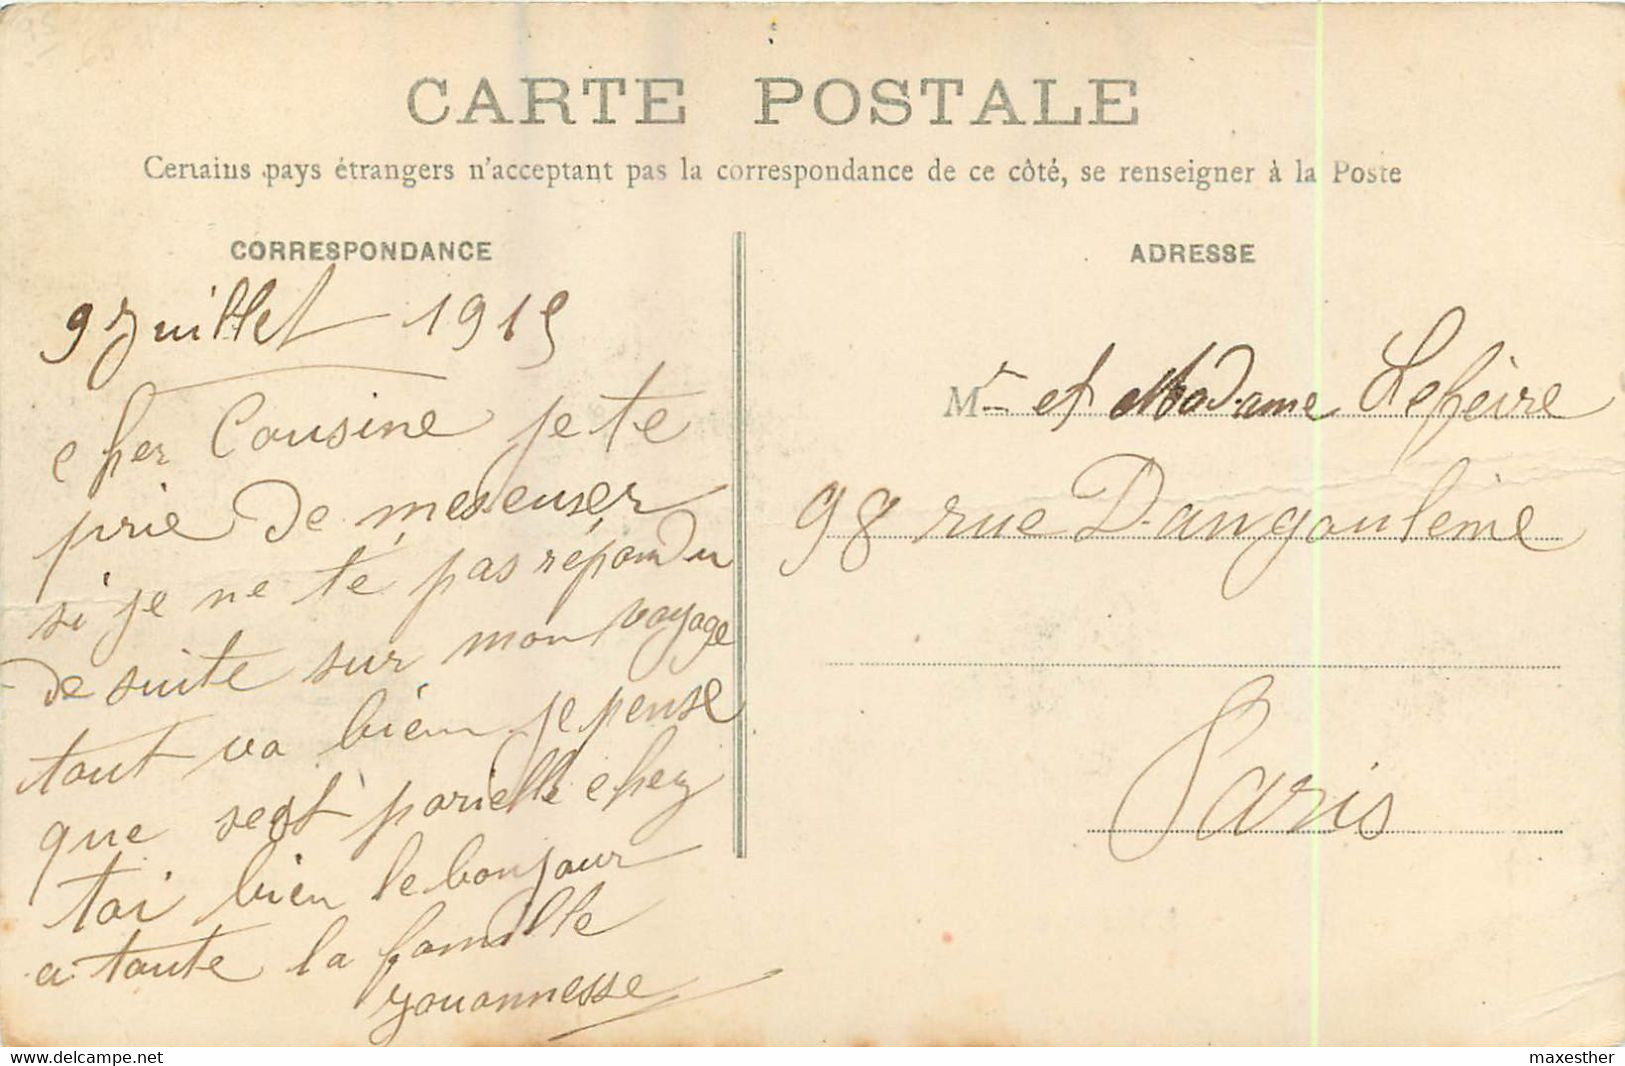 CARTE POSTALE
Certains pays étrangers n'acceptant pas la correspondance de ce côté, se renseigner à la Poste
CORRESPONDANCE
9 Juillet 1915
cher Cousine je te
prie de meseuser
si je ne te pas répondu
de suite sur mon voyage
tout va bien je pense
que sest parielle chez
toi bien le bonjour
a toute la famille
ADRESSE
Mr et Madame Lefèvre
98 rue Dangoulème
Paris
delcampe.net
maxesther